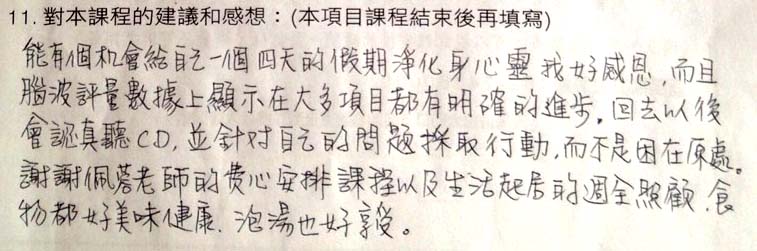 11. 對本課程的建議和感想：(本項目課程結束後再填寫)
能有個机會給自己一個四天的假期淨化身心靈我好感恩,而且
腦波評量數據上顯示在大多項目都有明確的進步.回去以後
會認真聽CD,並針对自己的問題採取行動,而不是困在原處。
謝謝佩蓉老師的费心安排課程以及生活起居的週全照顧.食
物都好美味健康.泡湯也好享受。